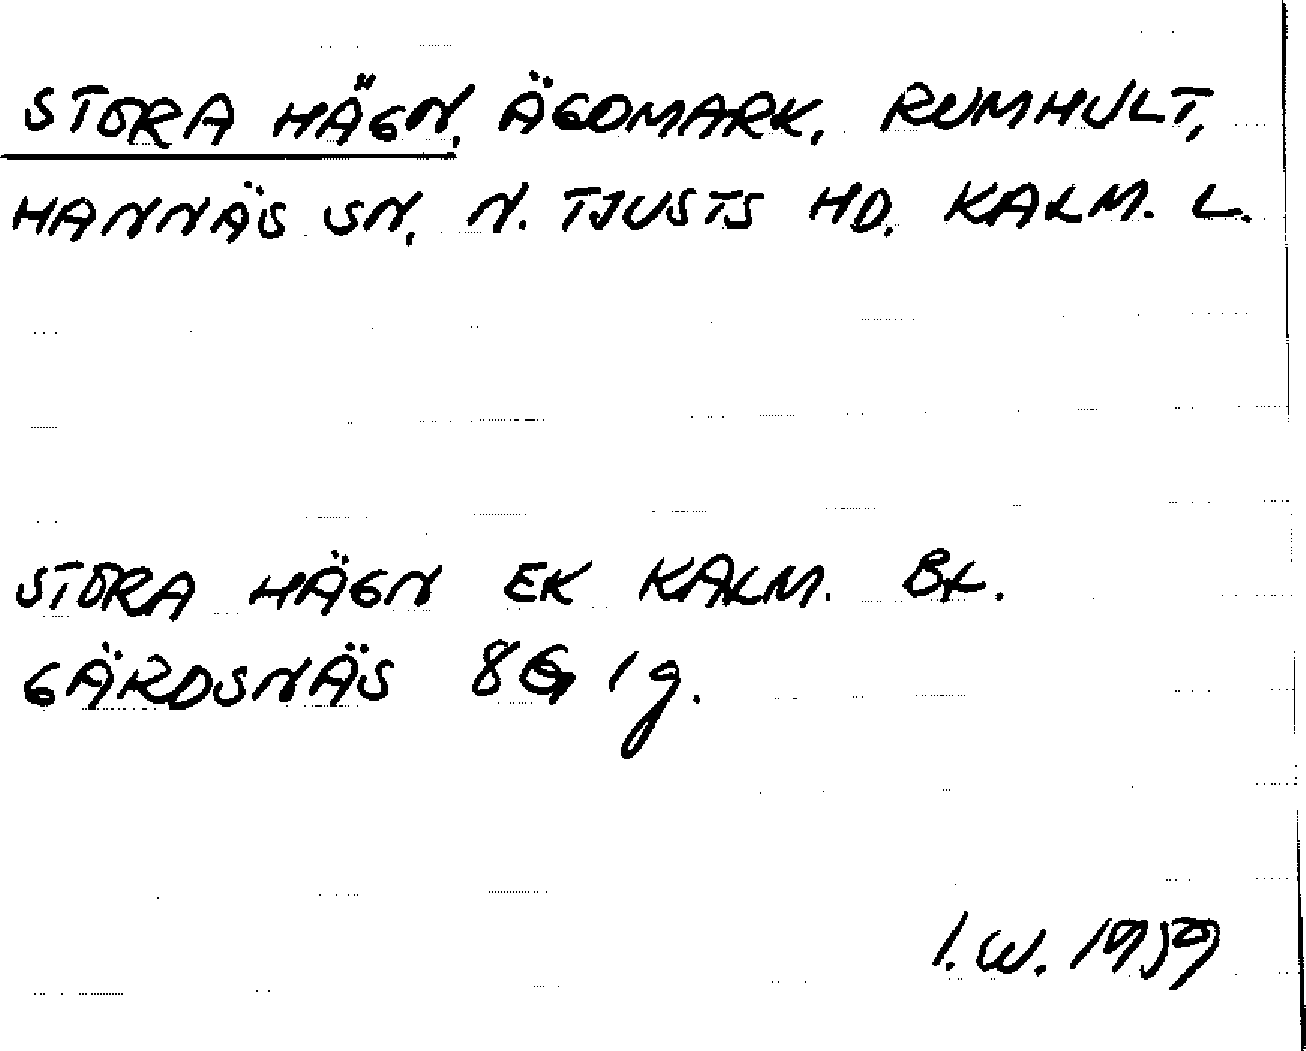 STORA HÄGN, ÄGOMARK, RUMHULT,
HANNÄS SN, N. TJUSTS HD. KALM. L.
STORA HÄGN EK KALM. BL.
GÄRDSNÄS 8G 1g.
I.W. 1959